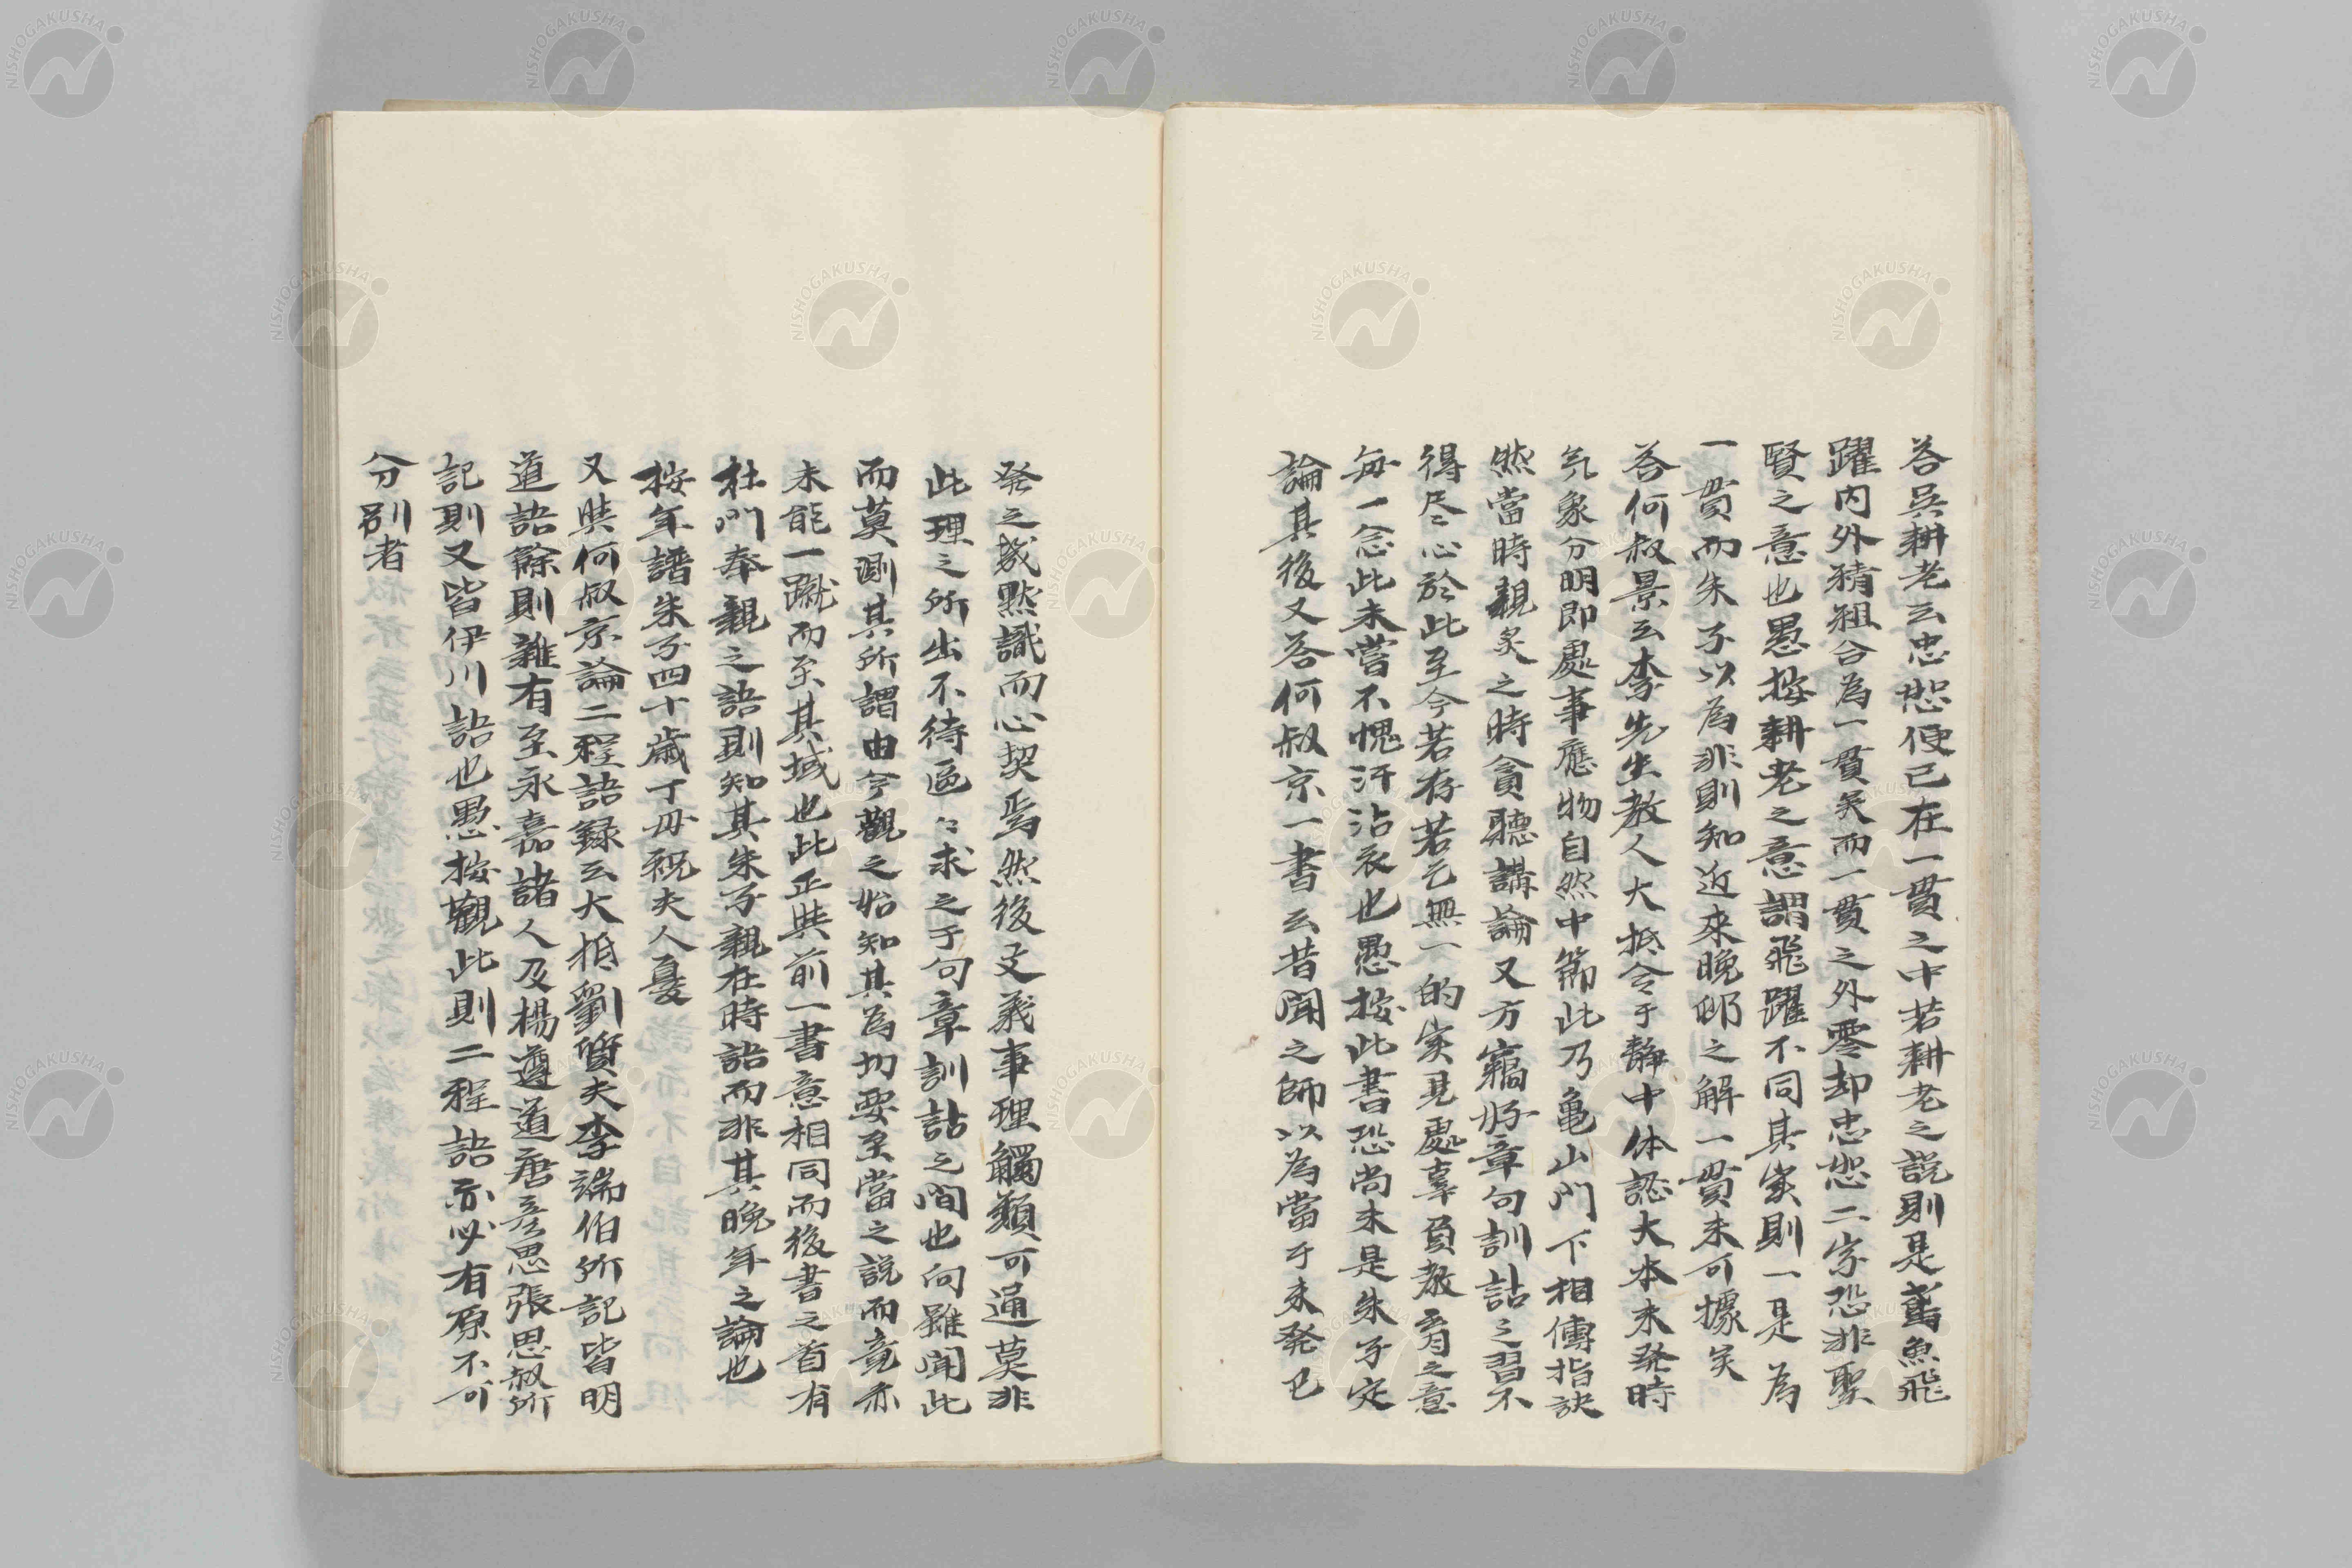 答呉耕老云忠恕便已在一貫之中若耕老之説則是鳶魚飛
躍内外精粗合為一貫矣而一貫之外零却忠恕二字恐非聖
賢之意也愚按耕老之意謂飛躍不同其実則一是為
一貫而朱子以為非則知近来晚邨之解一貫未可據矣
答何叔景云李先生教人大抵令于静中体認大本未発時
気象分明即處事應物自然中節此乃亀山門下相傳指訣
然當時親炙之時貪聽講論又方竊好章句訓詁之習不
得尽心於此至今若存若亡無一的実見處辜負教育之意
毎一念此未嘗不愧汗沾衣也愚按此書恐尚未是朱子定
論其後又答何叔京一書云昔聞之師以為當于未発已
発之幾黙識而心契焉然後文義事理觸類可通莫非
此理之所出不待區々求之于句章訓詁之間也向雖聞此
而莫測其所謂由今觀之始知其為切要至當之説而竟亦
未能一蹴而至其域也此正與前一書意相同而後書之首有
杜門奉親之語則知其朱子親在時語而非其晚年之論也
按年譜朱子四十歳丁母祝夫人憂
又與何叔京論二程語録云大抵劉質夫李端伯所記皆明
道語餘則雜有至永嘉諸人及楊遵道唐彦思張思叔所
記則又皆伊川語也愚按觀此則二程語亦必有原不可
分別者
NISHOGAKUSHA